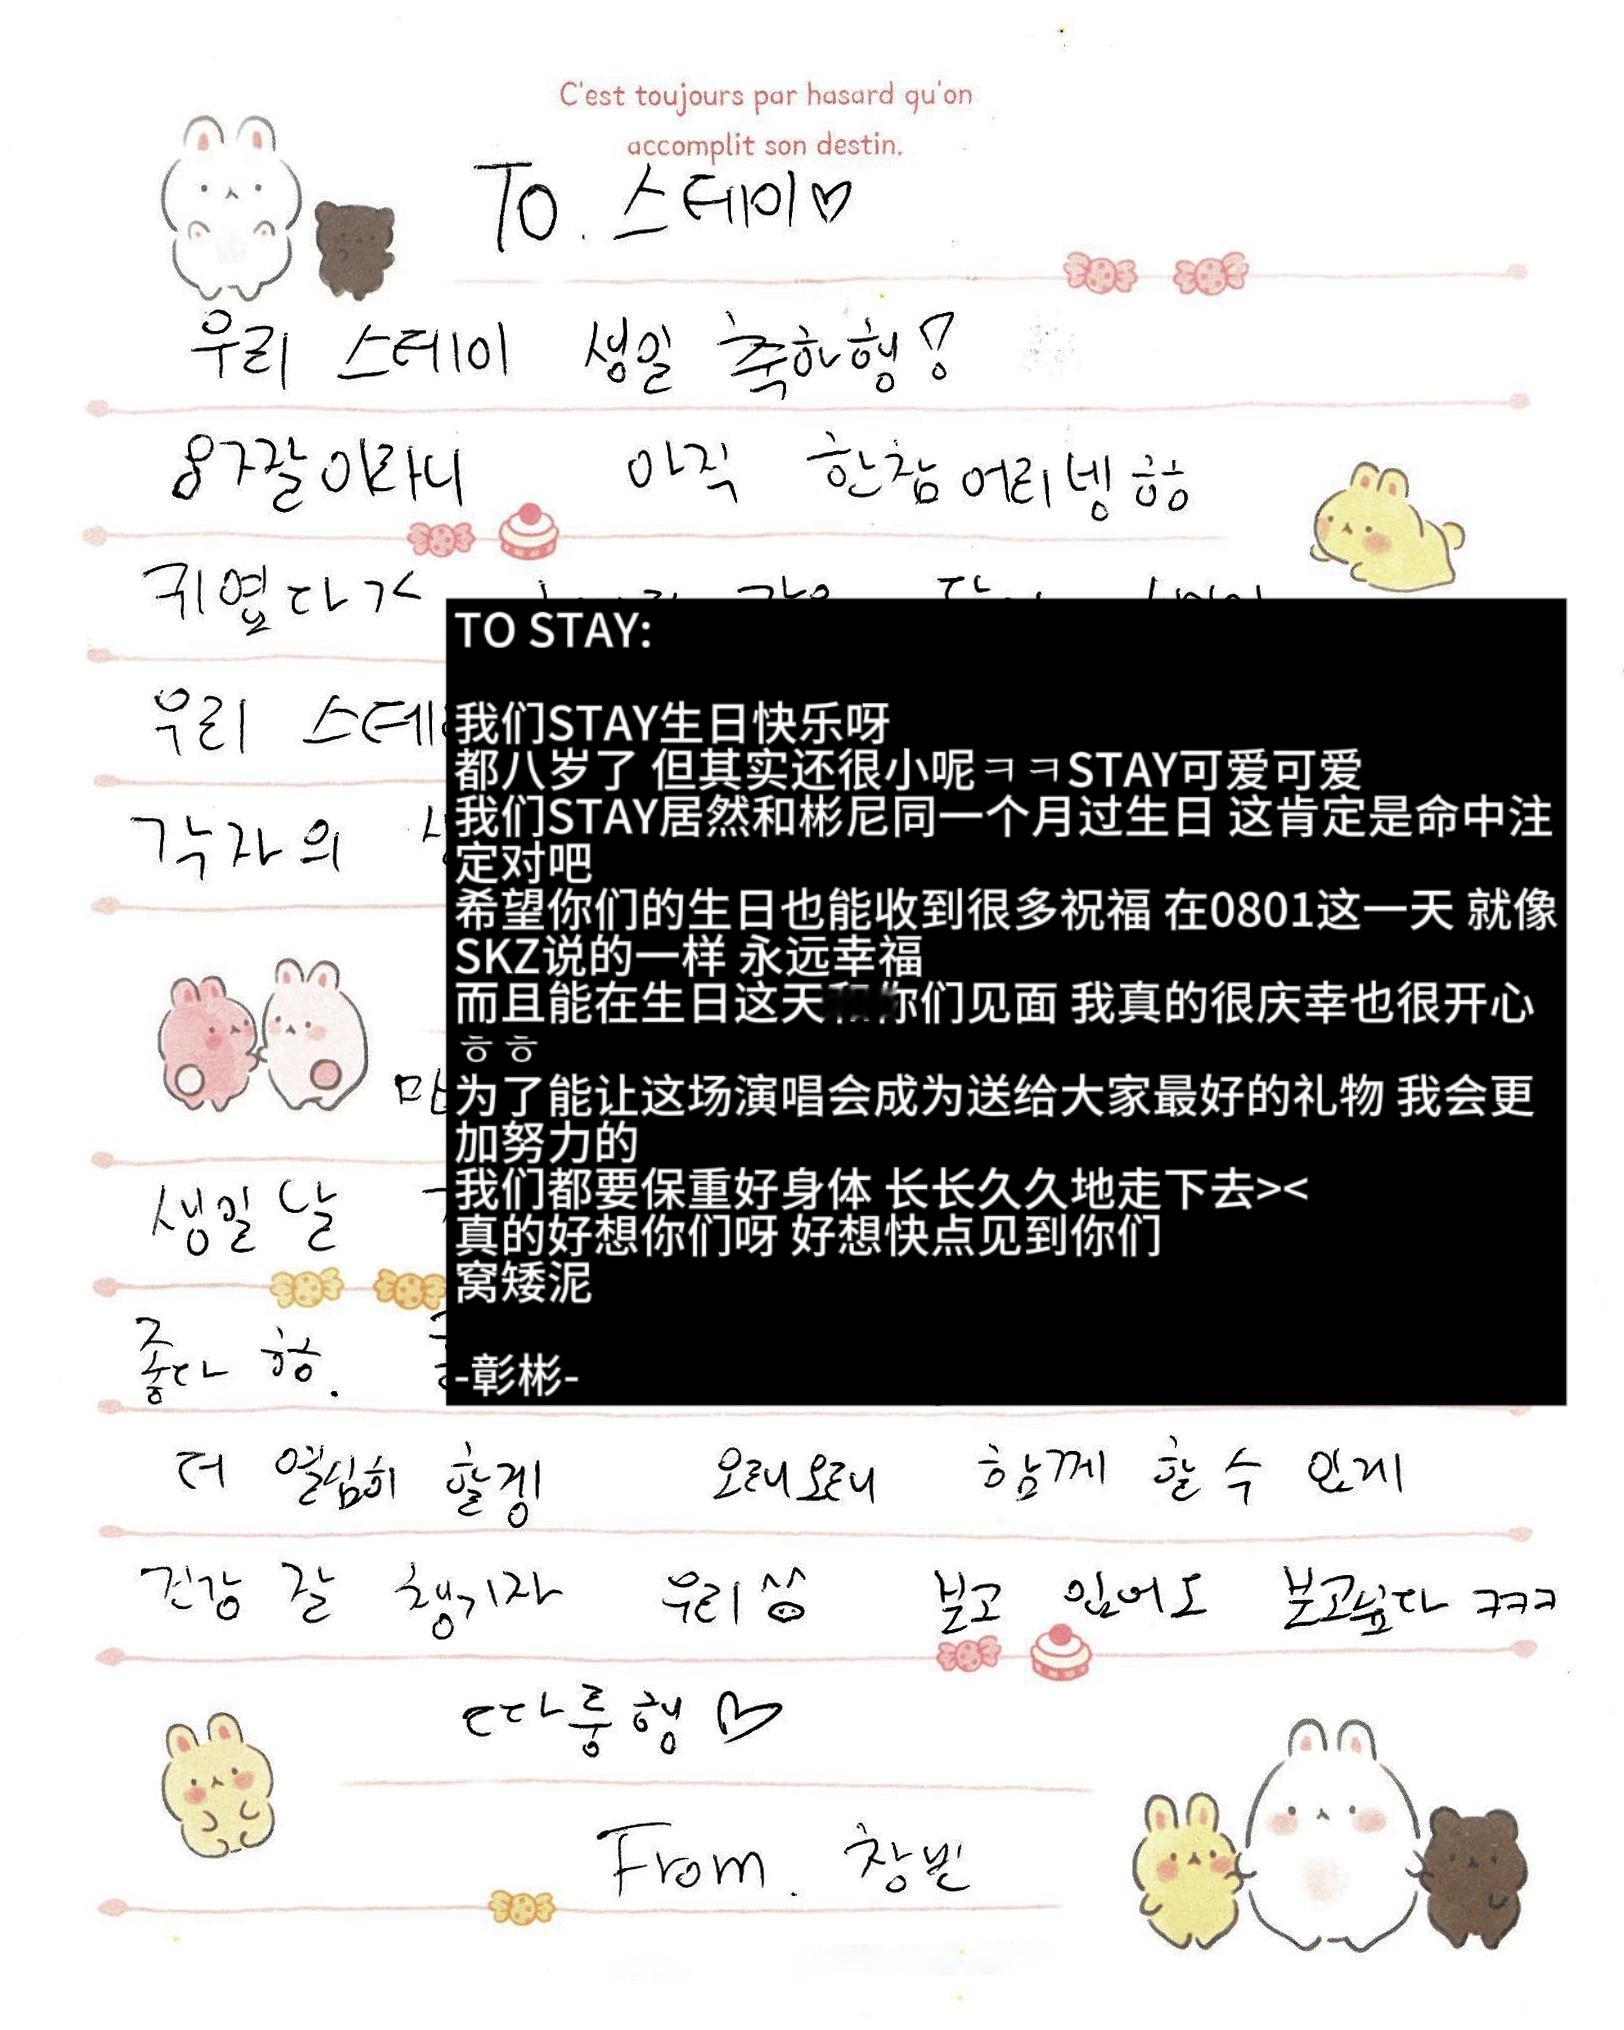 C'est toujours par hasard qu'on
accomplit son destin.
TO. 스테이♡
우리 스테이 생일 축하행!
8짤이라니 아직 한참 어리넹 ㅎㅎ
귀엽다 ㅋ
우리 스테
각자의
생일날
좋다 ㅎㅎ.
TO STAY:
我们STAY生日快乐呀
都八岁了 但其实还很小呢ㅋㅋSTAY可爱可爱
我们STAY居然和彬尼同一个月过生日 这肯定是命中注
定对吧
希望你们的生日也能收到很多祝福 在0801这一天 就像
SKZ说的一样 永远幸福
而且能在生日这天 你们见面 我真的很庆幸也很开心
ㅎㅎ
为了能让这场演唱会成为送给大家最好的礼物 我会更
加努力的
我们都要保重好身体 长长久久地走下去><
真的好想你们呀 好想快点见到你们
窝矮泥
-彰彬-
더 열심히 할겡 오래오래 함께 할 수 있게
건강 잘 챙기자 우리 ^^ 보고 있어도 보고싶다 ㅋㅋㅋ
따룽행 ♡
From. 창빈